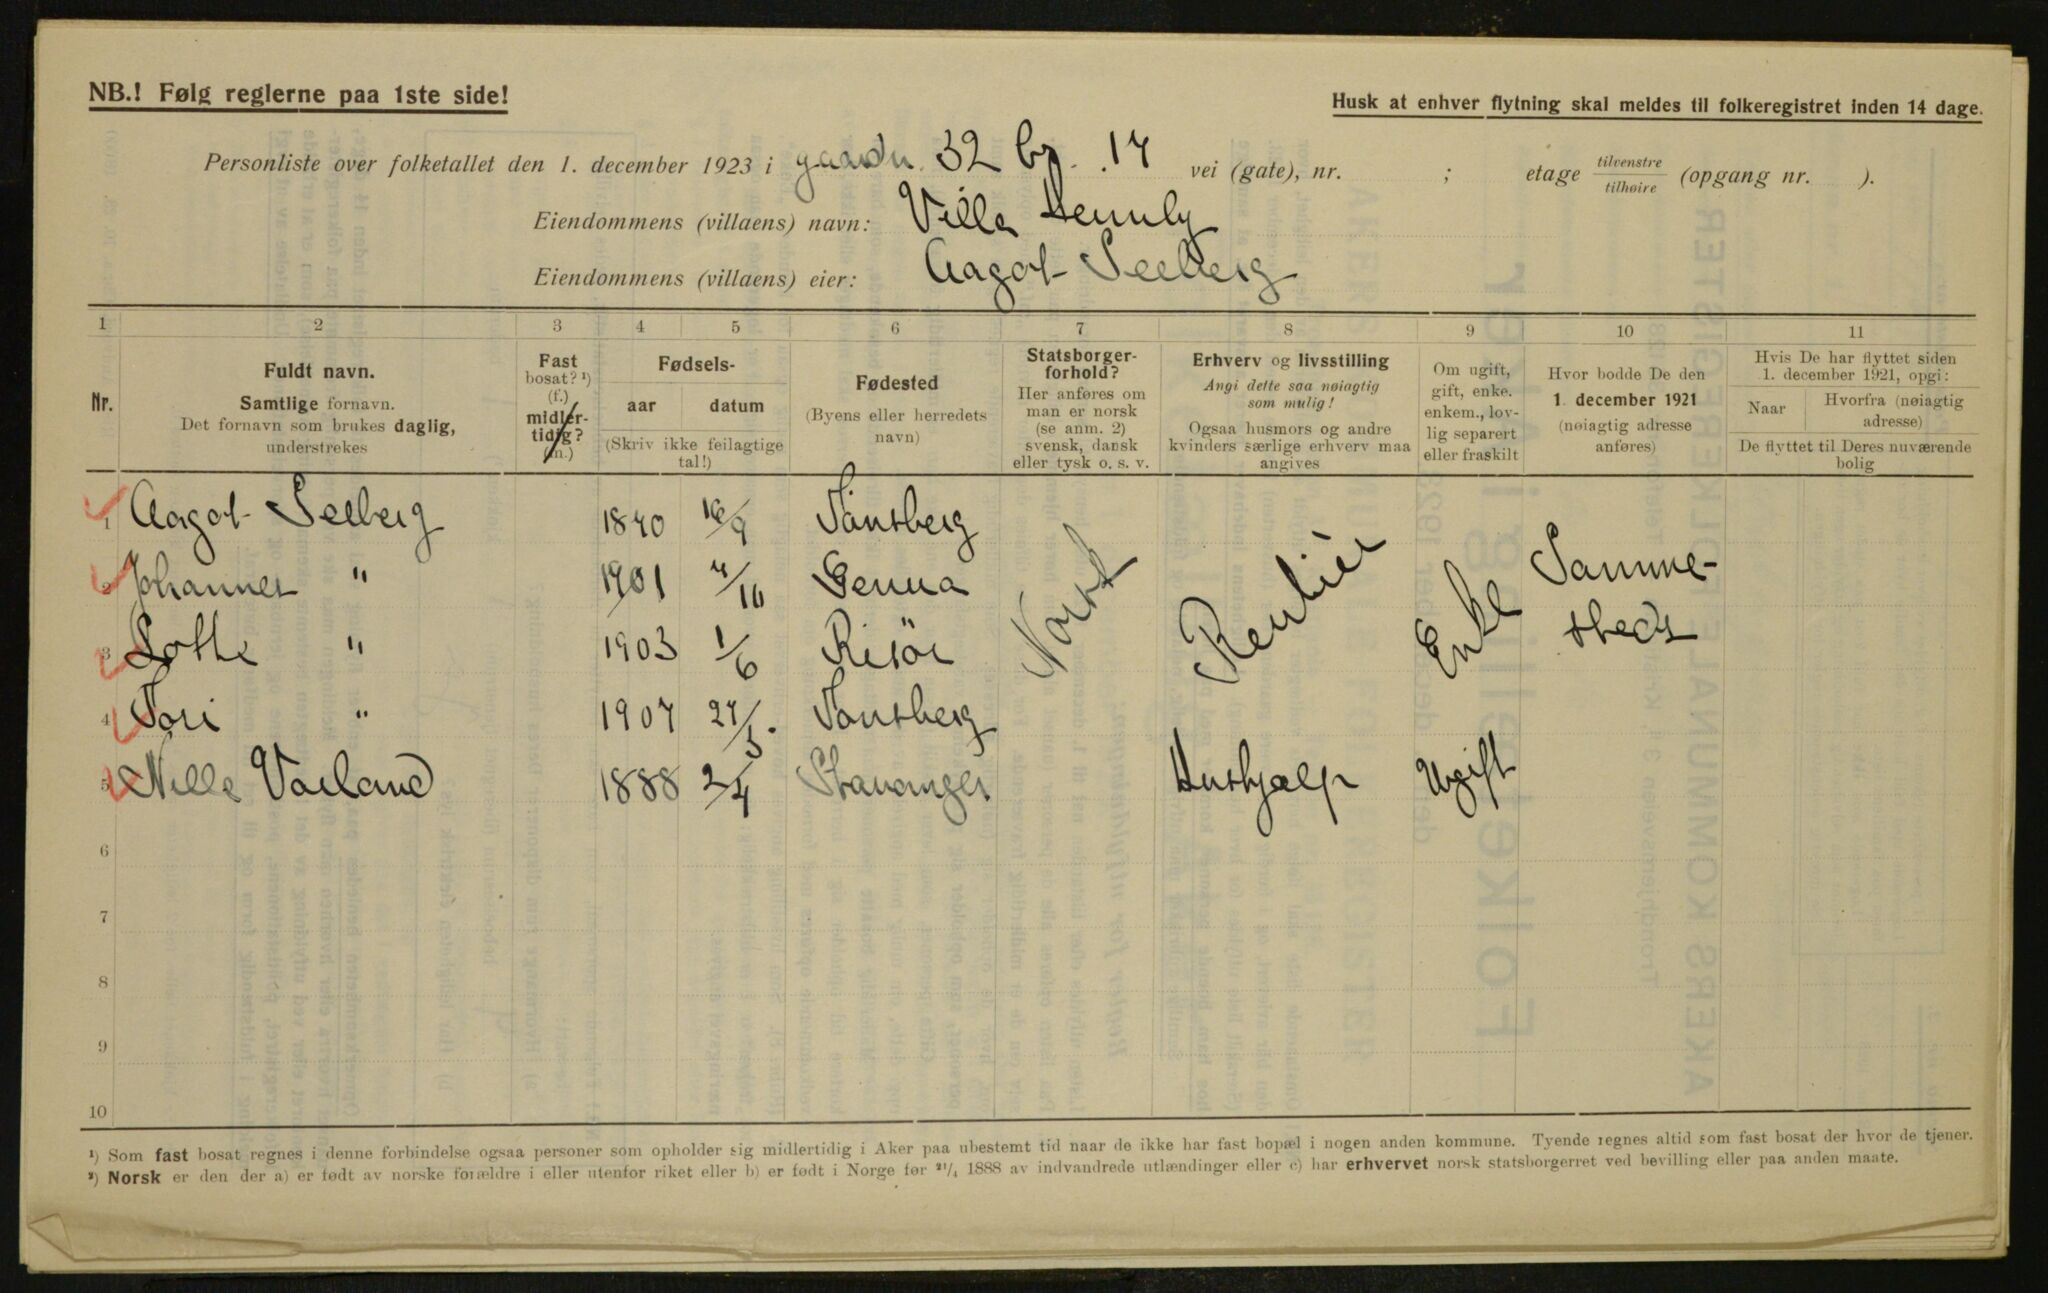 NB.! Følg reglerne paa 1ste side!
Husk at enhver flytning skal meldes til folkeregistret inden 14 dage.
Personliste over folketallet den 1. december 1923 i gaardn. 32 br. 17 vei (gate), nr. ; etage tilvenstre tilhøire (opgang nr. ).
Eiendommens (villaens) navn: Villa
Eiendommens (villaens) eier: Aagot Seeberg
1 2 3 4 5 6 7 8 9 10 11
Nr.
Fuldt navn.
Samtlige fornavn.
Det fornavn som brukes daglig,
understrekes
Fast
bosat? ¹)
(f.)
midler-
tidig?
(m.)
Fødsels-
aar datum
(Skriv ikke feilagtige
tal!)
Fødested
(Byens eller herredets
navn)
Statsborger-
forhold?
Her anføres om
man er norsk
(se anm. 2)
svensk, dansk
eller tysk o. s. v.
Erhverv og livsstilling
Angi dette saa nøiagtig
som mulig!
Ogsaa husmors og andre
kvinders særlige erhverv maa
angives
Om ugift,
gift, enke.
enkem., lov-
lig separert
eller fraskilt
Hvor bodde De den
1. december 1921
(nøiagtig adresse
anføres)
Hvis De har flyttet siden
1. december 1921, opgi:
Naar
Hvorfra (nøiagtig
adresse)
De flyttet til Deres nuværende
bolig
1 Aagot Seeberg 1870 16/9 Tönsberg Norsk Rentier Enke Samme-
2 Johannes " 1901 4/10 Genua steds
3 Lotte " 1903 1/6 Risör
4 Tori " 1907 27/5. Tönsberg
5 Nille Varland 1888 2/4 Stavanger Hushjælp Ugift
6
7
8
9
10
¹) Som fast bosat regnes i denne forbindelse ogsaa personer som opholder sig midlertidig i Aker paa ubestemt tid naar de ikke har fast bopæl i nogen anden kommune. Tyende regnes altid som fast bosat der hvor de tjener.
²) Norsk er den der a) er født av norske forældre i eller utenfor riket eller b) er født i Norge før ²¹/₄ 1888 av indvandrede utlændinger eller c) har erhvervet norsk statsborgerret ved bevilling eller paa anden maate.